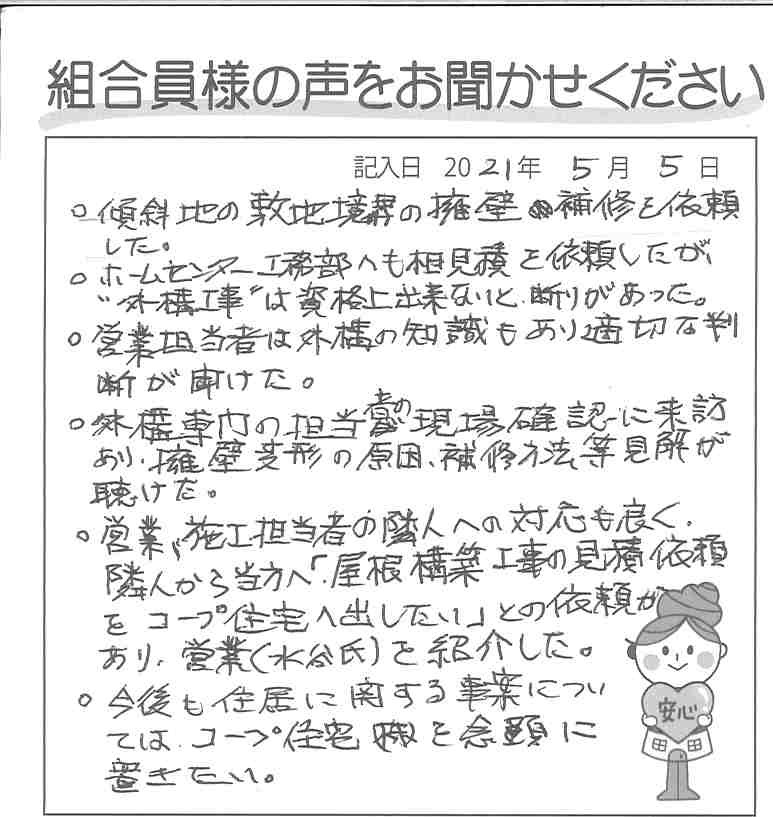 組合員様の声をお聞かせください
記入日 2021年 5月 5日
○ 傾斜地の敷地境界の擁壁の補修を依頼
した。
○ ホームセンター工務部へも相見積を依頼したが、
"外構工事"は資格上出来ないと、断りがあった。
○ 営業担当者は外構の知識もあり適切な判
断が聞けた。
○ 外構専門の担当者の現場確認に来訪
あり、擁壁変形の原因、補修方法等見解が
聴けた。
○ 営業、施工担当者の隣人への対応も良く、
隣人から当方へ「屋根構築工事の見積依頼
をコープ住宅へ出したい」との依頼が
あり、営業(水谷氏)を紹介した。
○ 今後も住居に関する事案につい
ては、コープ住宅様を念頭に
置きたい。
安心